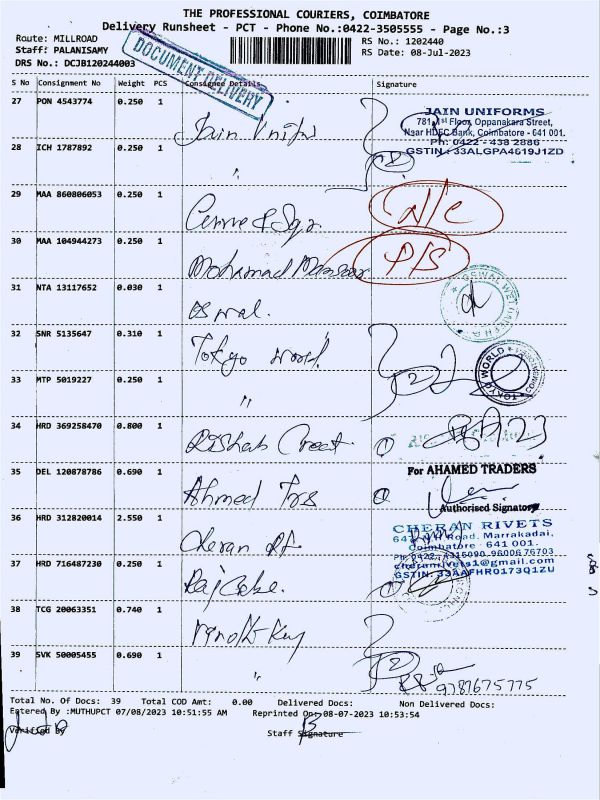 THE PROFESSIONAL COURIERS, COIMBATORE
Delivery Runsheet - PCT - Phone No.:0422-3505555 - Page No.:3
Route: MILLROAD
RS No.: 1202440
Staff: PALANISAMY
RS Date: 08-Jul-2023
DRS No.: DCJB120244003
DOCUMENT DELIVERY
S No Consignment No Weight PCS Consignee Details Signature
27 PON 4543774 0.250 1 Jain Unifs
JAIN UNIFORMS
781, 1st Floor, Oppanakara Street,
Near HDFC Bank, Coimbatore - 641 001.
Ph: 0422 - 438 2886
GSTIN: 33ALGPA4619J1ZD
28 ICH 1787892 0.250 1 " 2
29 MAA 860806053 0.250 1
30 MAA 104944273 0.250 1 Mohamad Mansoor P/S
31 NTA 13117652 0.030 1 Oswal.
32 SNR 5135647 0.310 1 Tokyo World.
TOKYO WORLD
33 MTP 5019227 0.250 1 " 2
34 HRD 369258470 0.800 1 Rishab Creat 1
35 DEL 120878786 0.690 1 Ahmed Trs 1
For AHAMED TRADERS
Authorised Signatory
36 HRD 312820014 2.550 1 Cheran
CHERAN RIVETS
Road, Marrakadai,
Coimbatore - 641 001.
Ph: 0422 - 4315090, 96006 76703
cheranrivets1@gmail.com
GSTIN: 33AAFHR0173Q1ZU
37 HRD 716487230 0.250 1 1
38 TCG 20063351 0.740 1
39 SVK 50005455 0.690 1 " 2
9787675775
Total No. Of Docs: 39 Total COD Amt: 0.00 Delivered Docs: Non Delivered Docs:
Entered By :MUTHUPCT 07/08/2023 10:51:55 AM Reprinted On: 08-07-2023 10:53:54
Verified By Staff Signature